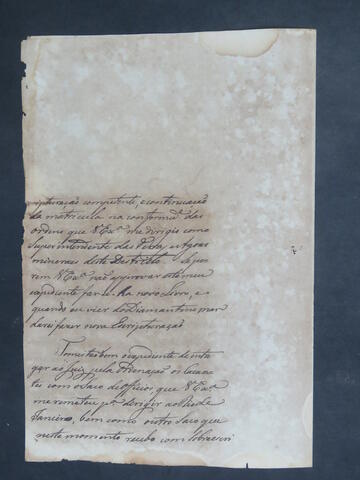 cripturação competente, e continuação
da matricula na conformid.e das
ordens que V Ex.a me dirigio como
Superintendente das Terras, e Agoas
mineraes deste Destricto. Se po
rem V Ex.a não approvar este meu
expediente far-se-ha novo Livro, e
quando eu vier do Diamantino man
darei fazer nova Escripturação
Tomei tambem o expediente de entre
gar ao Juiz pela Ordenação
com o Saco de officios que V Ex.a
me remeteu p.a dirigir ao Rio de
Janeiro, bem como outro Saco que
neste momento recebo com Sobrescri